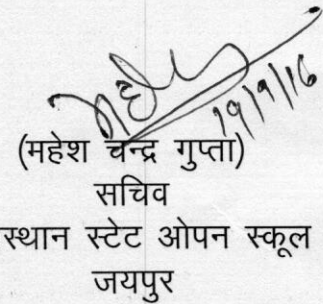 19/9/16
(महेश चन्द्र गुप्ता)
सचिव
स्थान स्टेट ओपन स्कूल
जयपुर